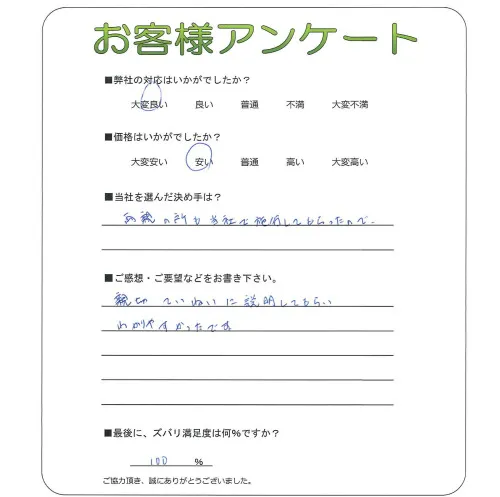 お客様アンケート
■弊社の対応はいかがでしたか？
大変良い 良い 普通 不満 大変不満
■価格はいかがでしたか？
大変安い 安い 普通 高い 大変高い
■当社を選んだ決め手は？
両親の所も当社で施工してもらったので。
■ご感想・ご要望などをお書き下さい。
親切 ていねいに説明してもらい
わかりやすかったです
■最後に、ズバリ満足度は何%ですか？
100 %
ご協力頂き、誠にありがとうございました。